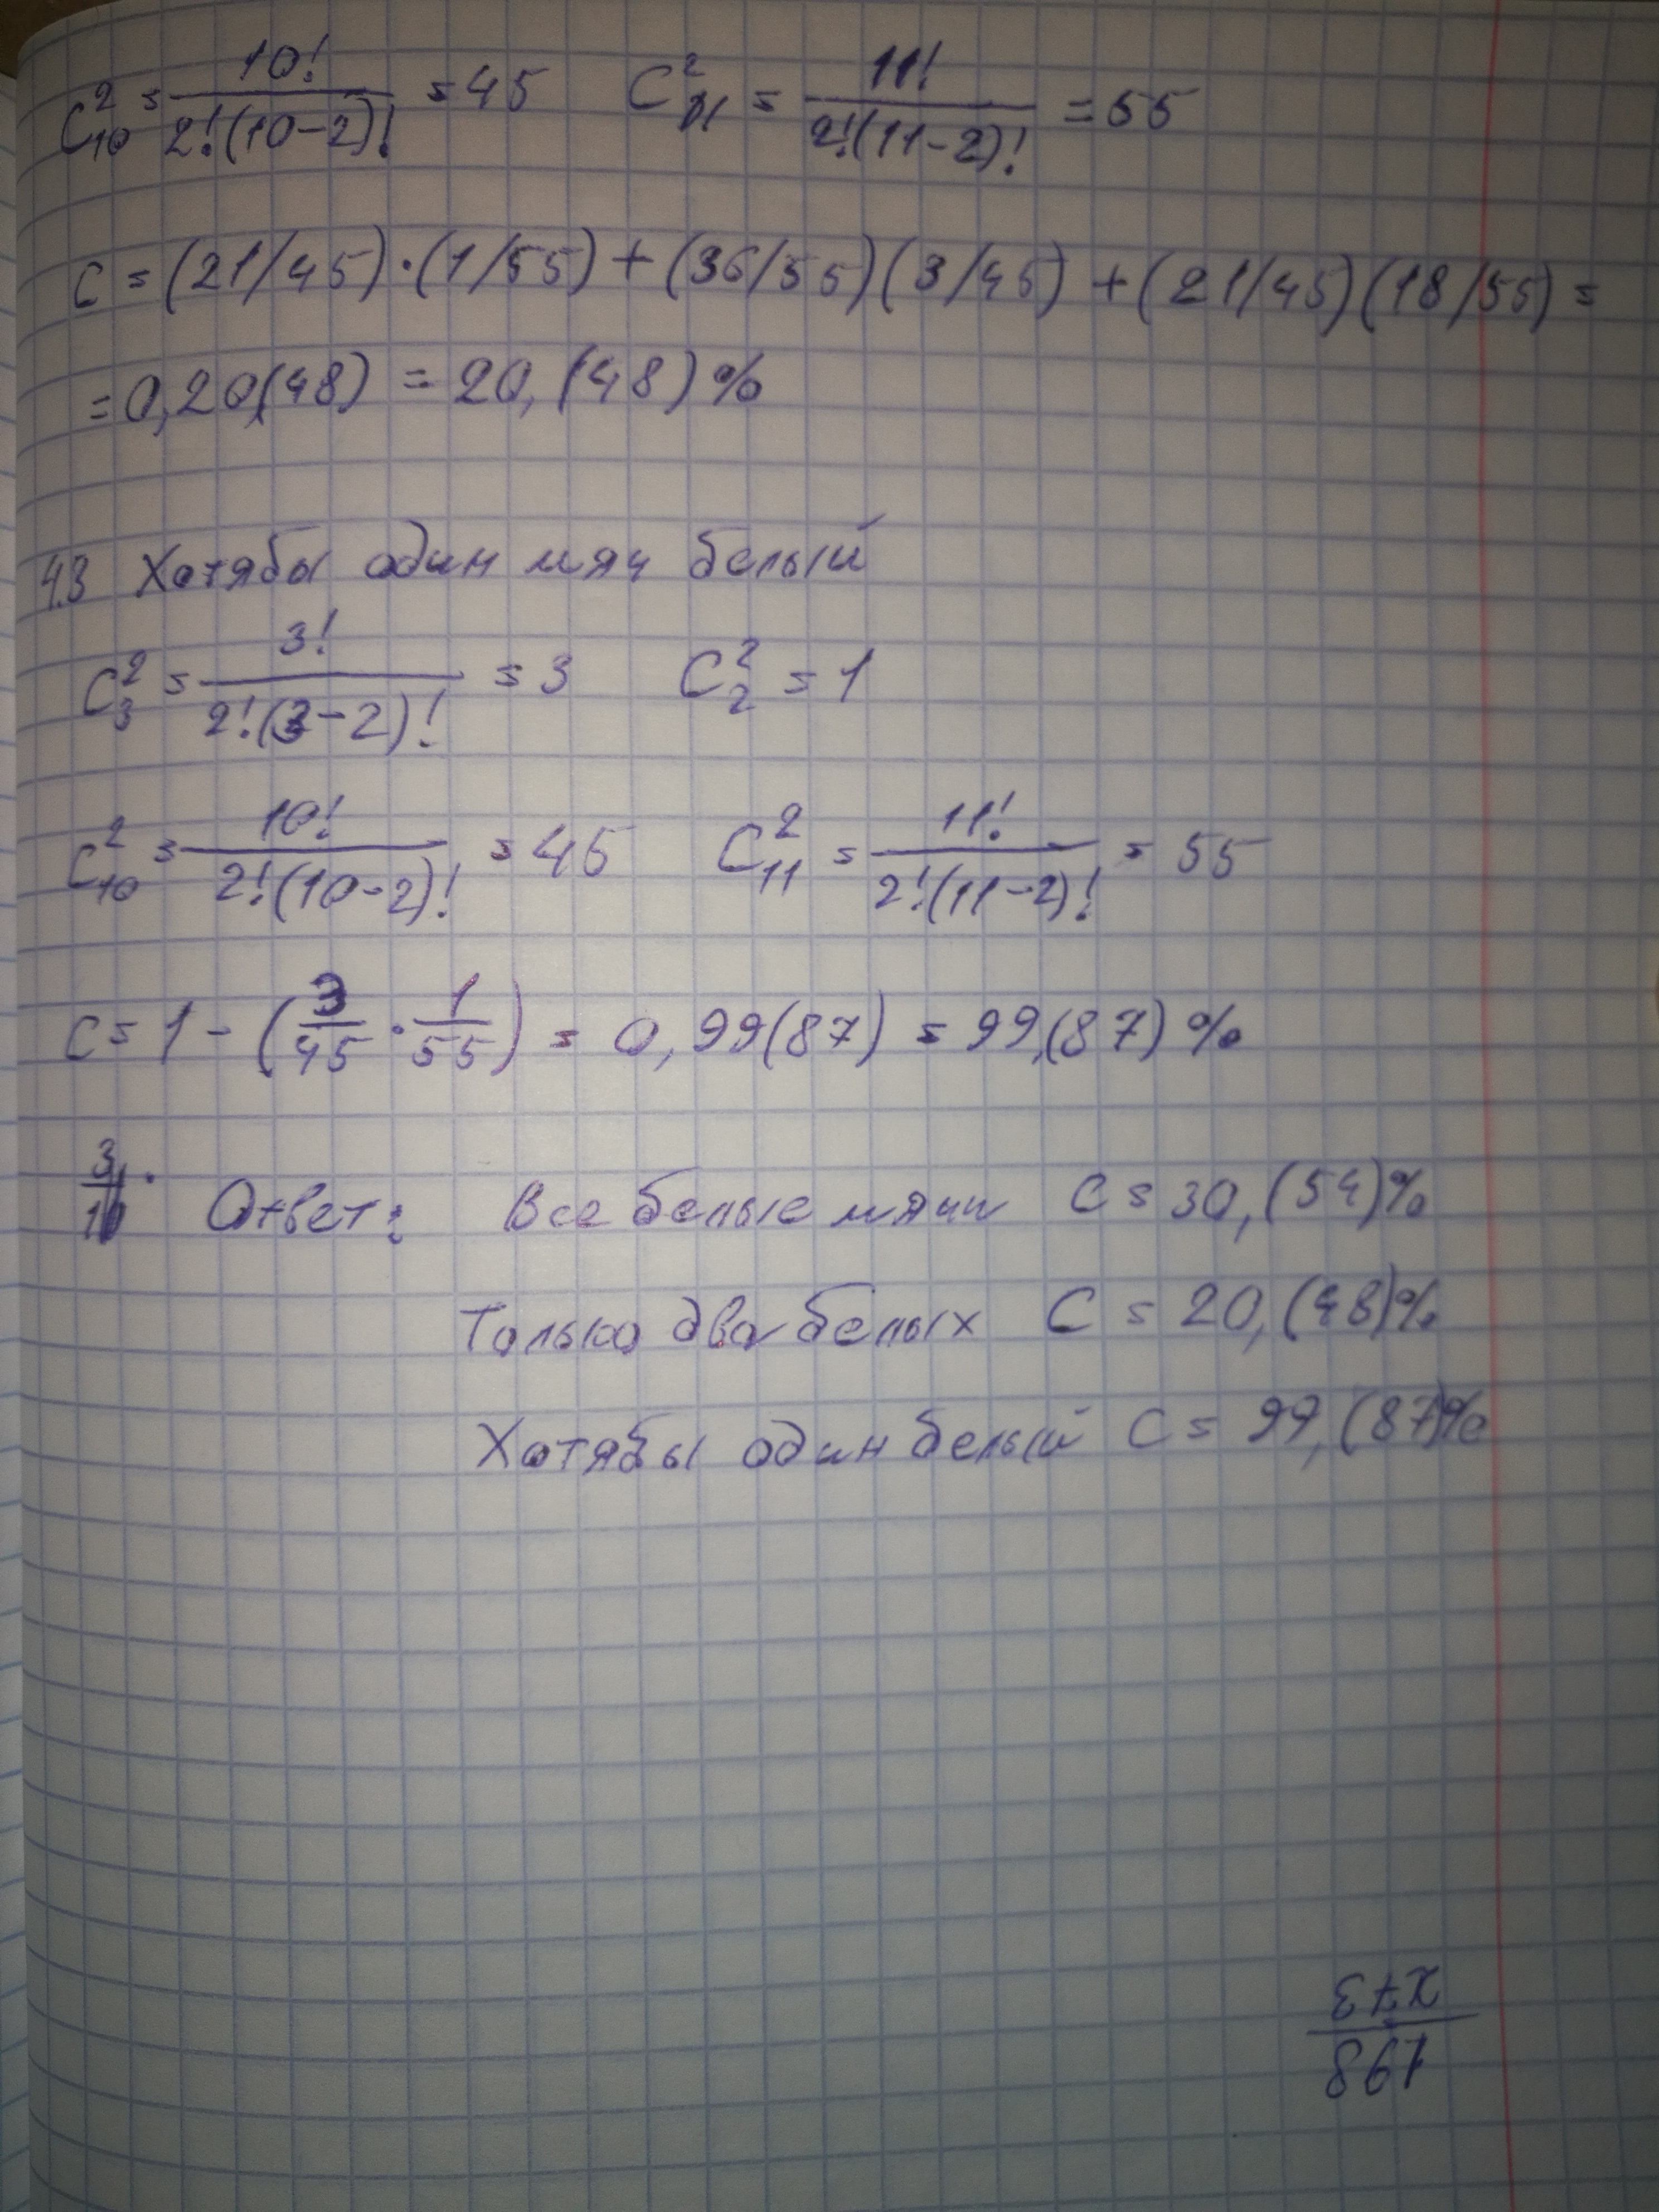 C²₁₀ = 10! / 2!(10-2)! = 45 C²₁₁ = 11! / 2!(11-2)! = 55
C = (21/45)·(1/55) + (36/55)(3/45) + (21/45)(18/55) =
= 0,20(48) = 20,(48)%
4.3 Хотябы один мяч белый
C²₃ = 3! / 2!(3-2)! = 3 C²₂ = 1
C²₁₀ = 10! / 2!(10-2)! = 45 C²₁₁ = 11! / 2!(11-2)! = 55
C = 1 - (3/45 · 1/55) = 0,99(87) = 99,(87)%
Ответ: Все белые мячи C = 30,(54)%
Только два белых C = 20,(48)%
Хотябы один белый C = 99,(87)%
198
x73